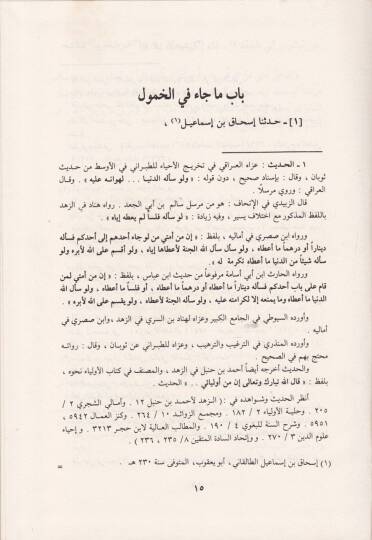 باب ما جاء في الخمول
[١] - حدثنا إسحاق بن إسماعيل(١) ،
١ - الحديث : عزاه العراقي في تخريج الأحياء للطبراني في الأوسط من حديث
ثوبان ، وقال : بإسناد صحيح ، دون قوله : « ولو سأله الدنيا ... لهوانه عليه » . وقال
العراقي : وروي مرسلاً .
قال الزبيدي في الإتحاف : هو من مرسل سالم بن أبي الجعد . رواه هناد في الزهد
باللفظ المذكور مع اختلاف يسير ، وفيه زيادة : « لو سأله فلساً لم يعطه إياه » .
ورواه ابن صصري في أماليه ، بلفظ : « إن من أمتي من لو جاء أحدهم إلى أحدكم فسأله
ديناراً أو درهماً ما أعطاه ، ولو سأل سأل الله الجنة لأعطاها إياه ، ولو أقسم على الله لأبره ولو
سأله شيئاً من الدنيا ما أعطاه تكرمة له » .
ورواه الحارث ابن أبي أسامة مرفوعاً من حديث ابن عباس ، بلفظ : « إن من أمتي لمن
قام على باب أحدكم فسأله ديناراً ما أعطاه أو درهماً ما أعطاه ، أو فلساً ما أعطاه ، ولو سأل الله
الدنيا ما أعطاه وما يمنعه إلا لكرامته عليه ، ولو سأله الجنة لأعطاه ، ولو يقسم على الله لأبره » .
وأورده السيوطي في الجامع الكبير وعزاه لهناد بن السري في الزهد ، وابن صصري في
أماليه .
وأورده المنذري في الترغيب والترهيب ، وعزاه للطبراني عن ثوبان ، وقال : رواته
محتج بهم في الصحيح .
والحديث أخرجه أيضاً أحمد بن حنبل في الزهد ، والمصنف في كتاب الأولياء نحوه ،
بلفظ : « قال الله تبارك وتعالى إن من أوليائي .. » الحديث .
أنظر الحديث وشواهده في : ( الزهد لأحمد بن حنبل ١٢ . وأمالي الشجري ٢ /
٢٠٥ . وحلية الأولياء ٢ / ١٨٢ . ومجمع الزوائد ١٠ / ٢٦٤ . وكنز العمال ٥٩٤٢ ،
٥٩٥١ . وشرح السنة للبغوي ٤ / ١٩٠ . والمطالب العالية لابن حجر ٣٢١٣ . و إحياء
علوم الدين ٣ / ٢٧٠ . و إتحاف السادة المتقين ٨ / ٢٣٥ ، ٢٣٦ ) .
(١) إسحاق بن إسماعيل الطالقاني ، أبو يعقوب ، المتوفى سنة ٢٣٠ هـ . =
١٥